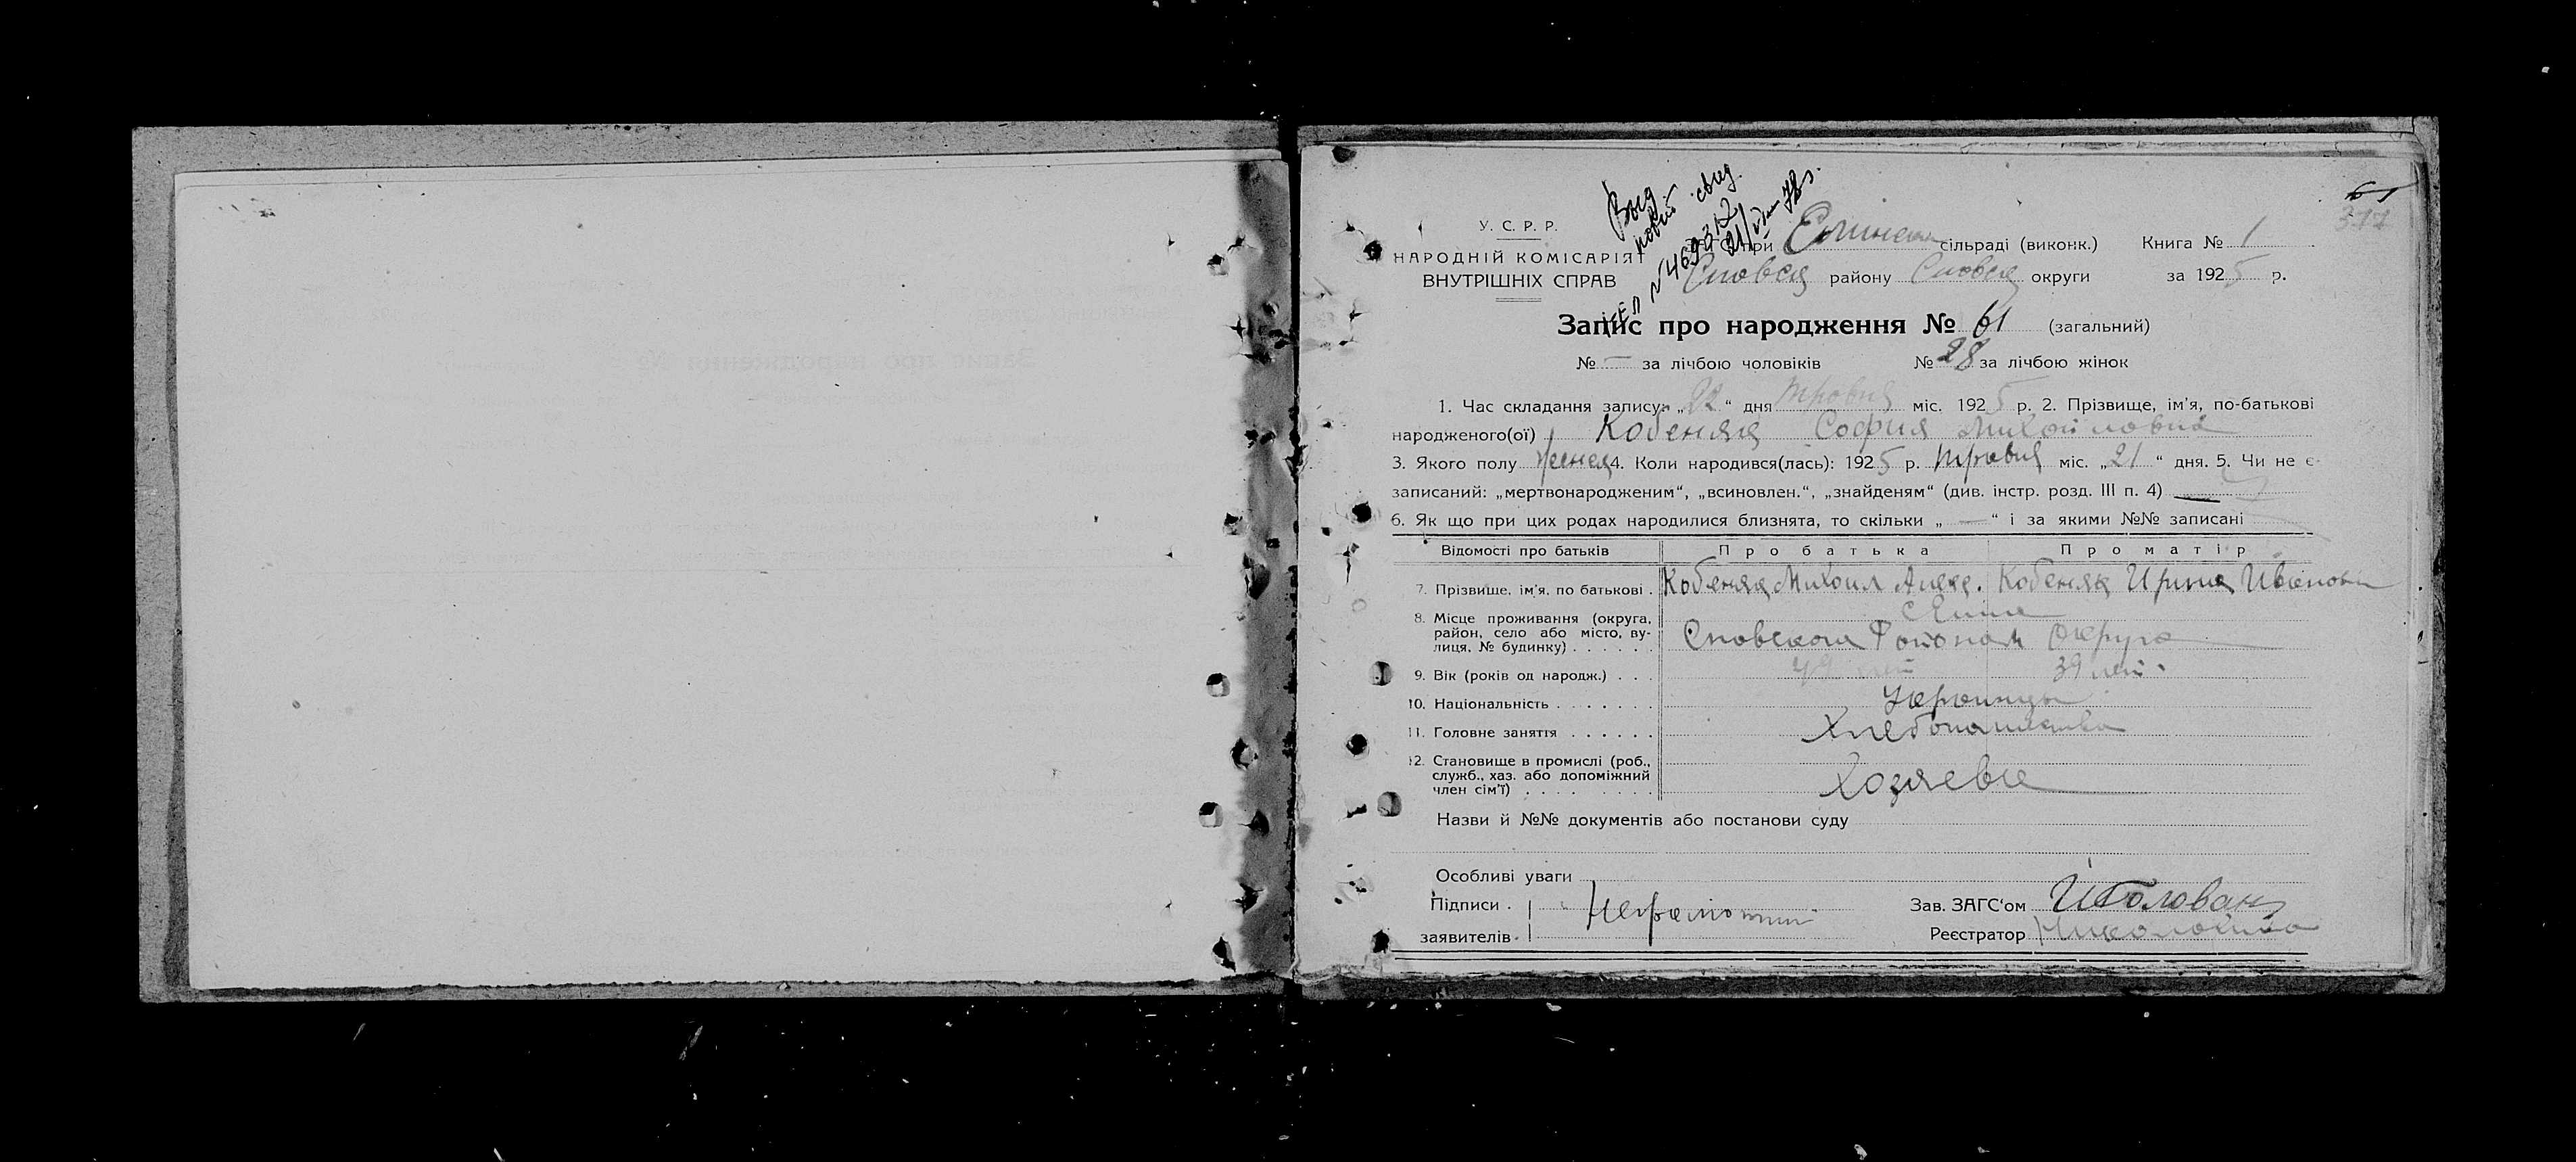 61
377
Выд
повт. свид.
І-ЕЛ №469312
21/ 78г.
У. С. Р. Р.
НАРОДНІЙ КОМІСАРІЯТ
ВНУТРІШНІХ СПРАВ
при Елинск сільраді (виконк.) Книга № 1
Сновск району Сновск округи за 1925 р.
Запис про народження № 61 (загальний)
№ — за лічбою чоловіків № 28 за лічбою жінок
1. Час складання запису: „22“ дня травня міс. 1925 р. 2. Прізвище, ім’я, по-батькові
народженого(ої) Кобеняк София Михайловна
3. Якого полу 4. Коли народився(лась): 1925 р. травня міс. „21“ дня. 5. Чи не є
записаний: „мертвонародженим“, „всиновлен.“, „знайденям“ (див. інстр. розд. III п. 4) —
6. Як що при цих родах народилися близнята, то скільки „ — “ і за якими №№ записані
Відомості про батьків Про батька Про матір
7. Прізвище, ім’я, по батькові . Кобеняк Михаил Алекс. Кобеняк Ирина Ивановн
8. Місце проживання (округа, с Елине
район, село або місто, ву- Сновского Району Округа
лиця, № будинку) . . . . . .
9. Вік (років од народж.) . . . 49 лет 39 лет
10. Національність . . . . . . . Украинцы
11. Головне заняття . . . . . . Хлебопашество
12. Становище в промислі (роб.,
служб., хаз. або допоміжний Хозяева
член сім’ї) . . . . . . . .
Назви й №№ документів або постанови суду
Особливі уваги
Підписи . неграмотный Зав. ЗАГС‘ом И Голован
заявителів Реєстратор